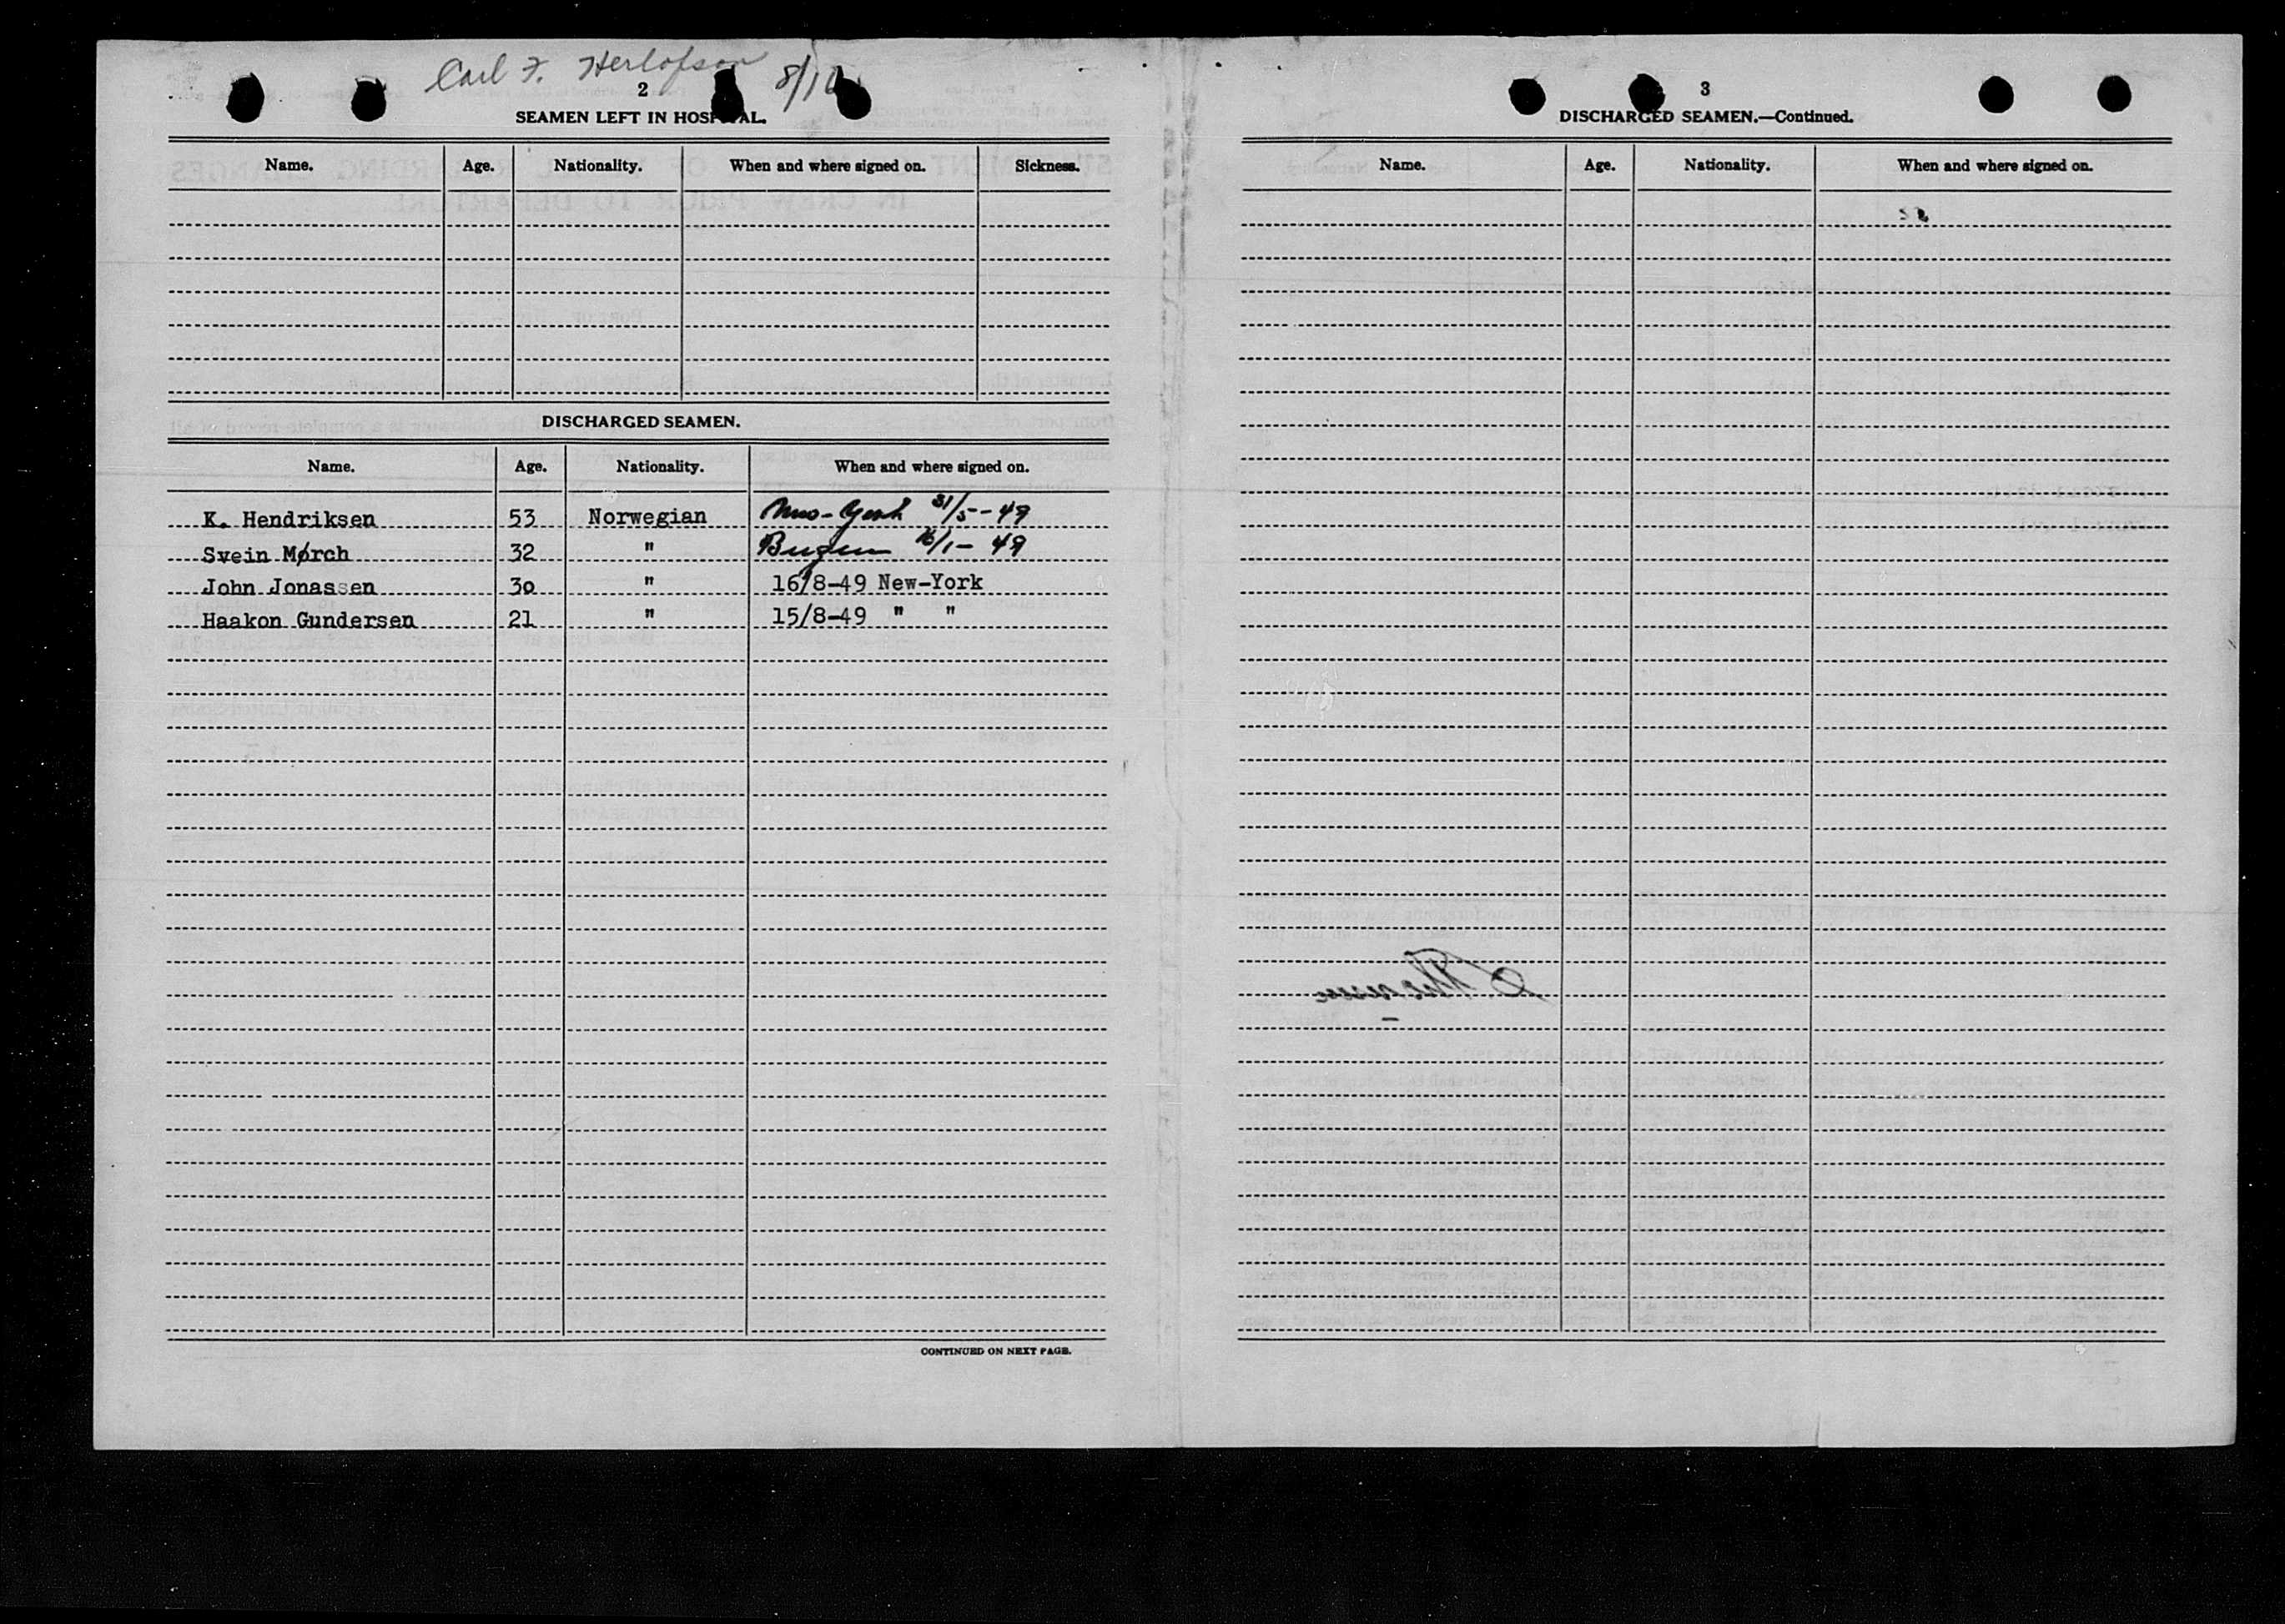 Carl F. Herlofson 8/16
2
SEAMEN LEFT IN HOSPITAL.
Name. Age. Nationality. When and where signed on. Sickness.
DISCHARGED SEAMEN.
Name. Age. Nationality. When and where signed on.
K. Hendriksen 53 Norwegian New-York 31/5-49
Svein Mørch 32 " Bergen 16/1-49
John Jonassen 30 " 16/8-49 New-York
Haakon Gundersen 21 " 15/8-49 " "
CONTINUED ON NEXT PAGE.
3
DISCHARGED SEAMEN.—Continued.
Name. Age. Nationality. When and where signed on.